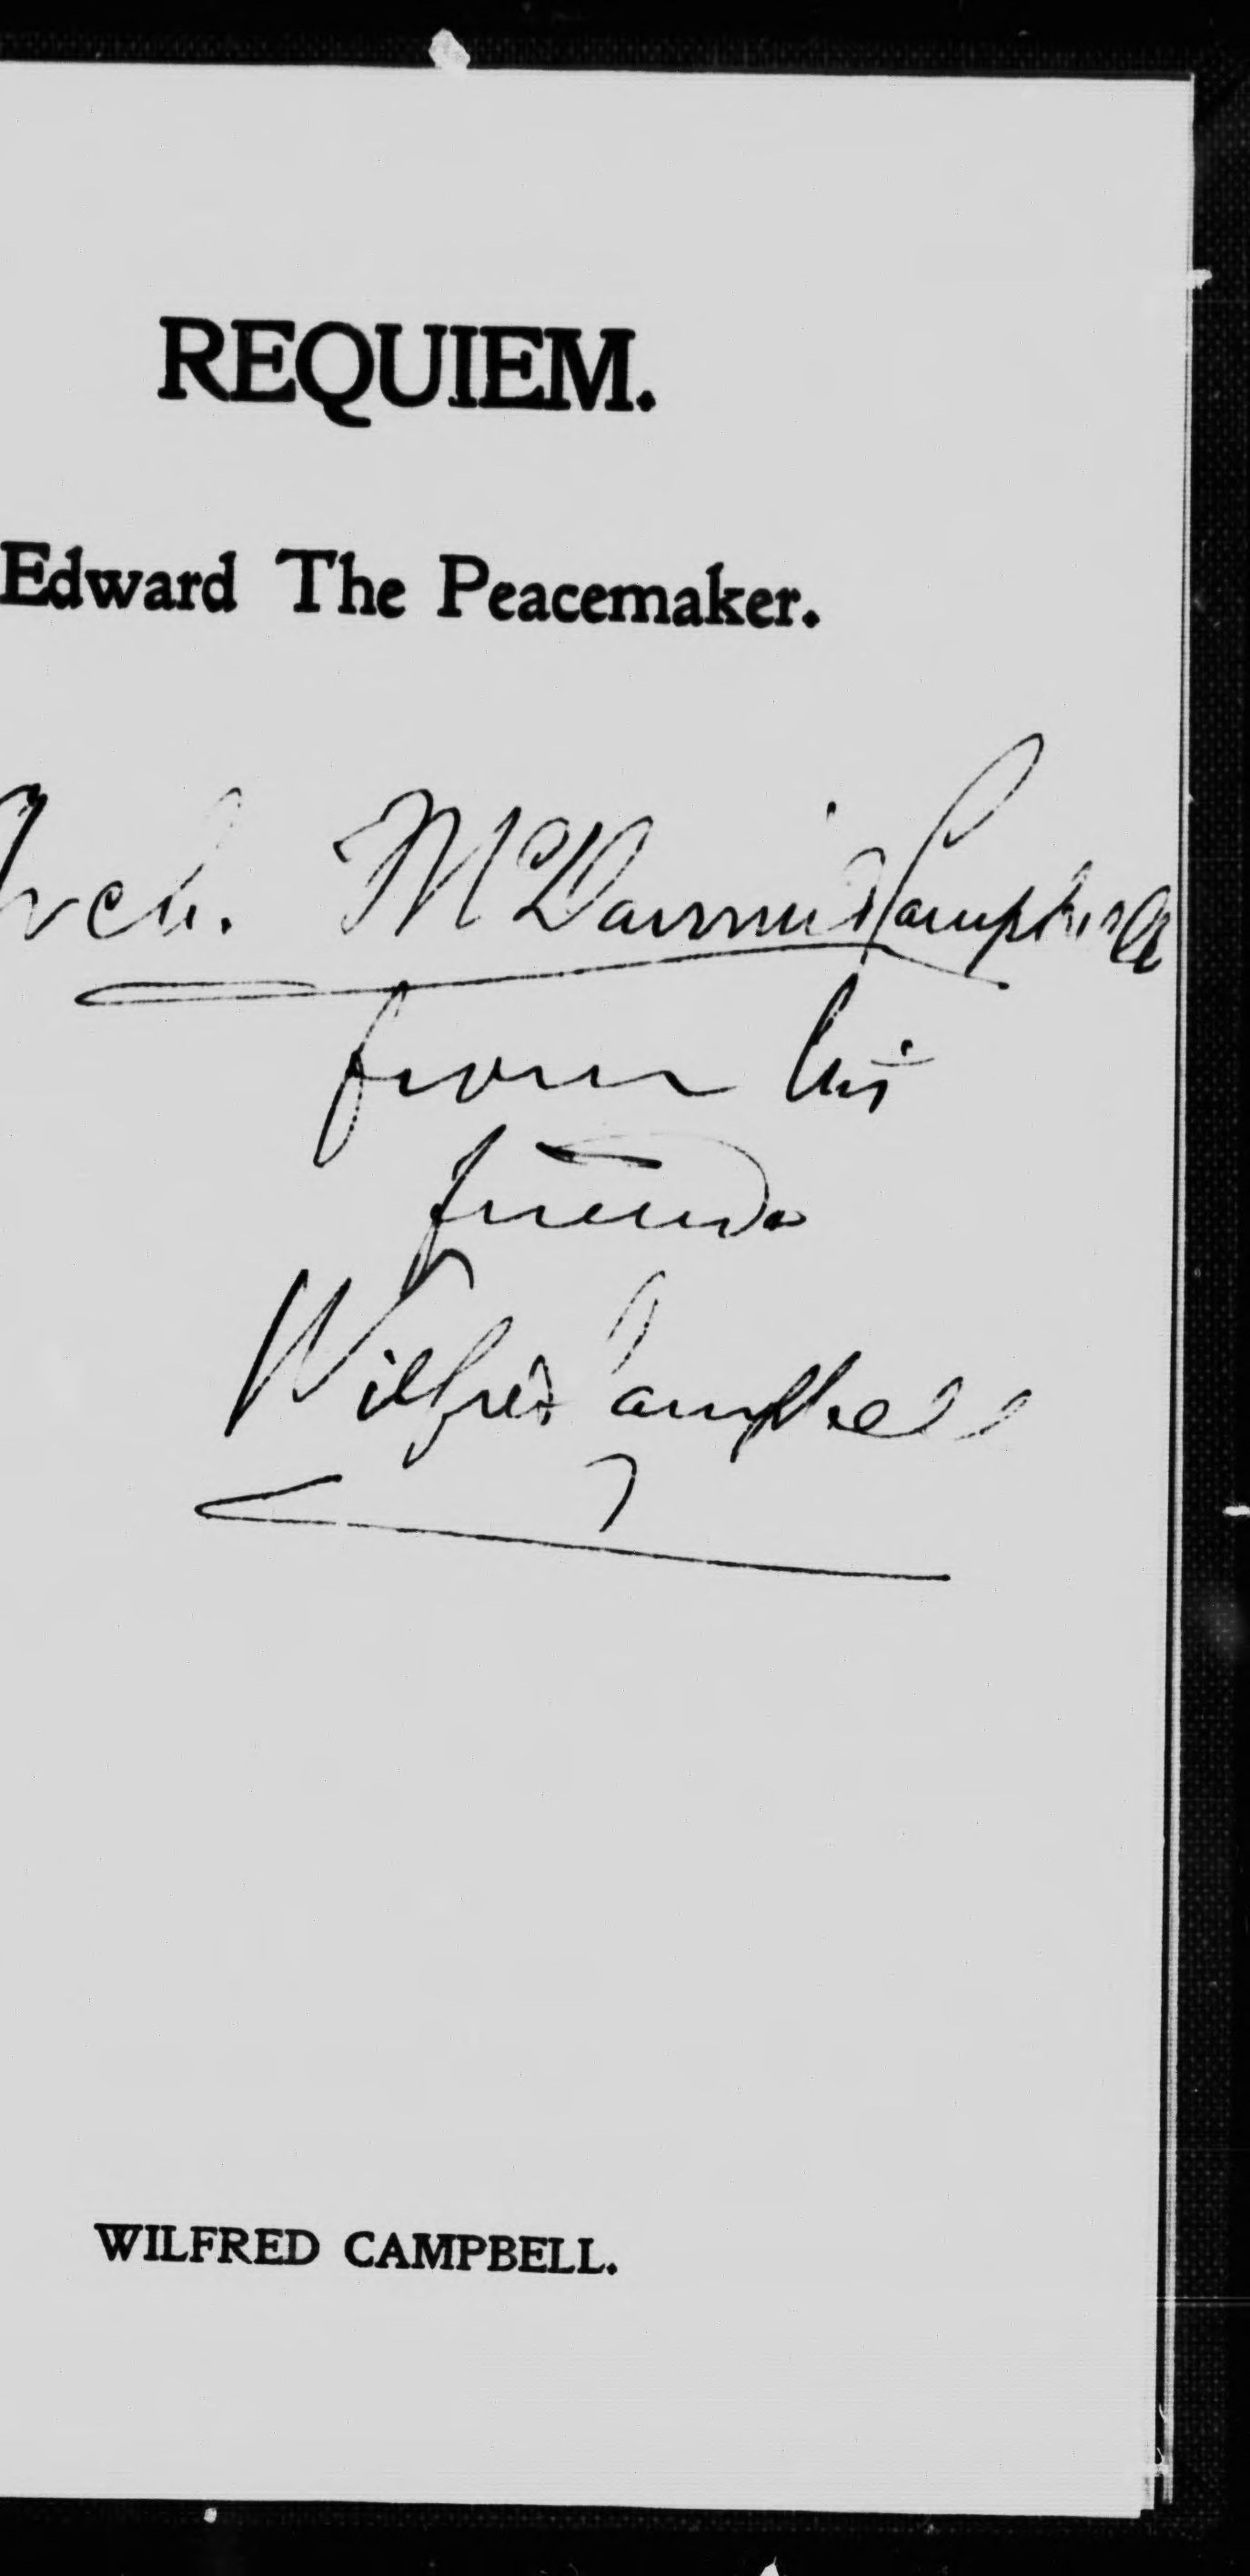 REQUIEM.
Edward The Peacemaker.
Arch. McDarmid Campbell
from his
friend
Wilfred Campbell
WILFRED CAMPBELL.